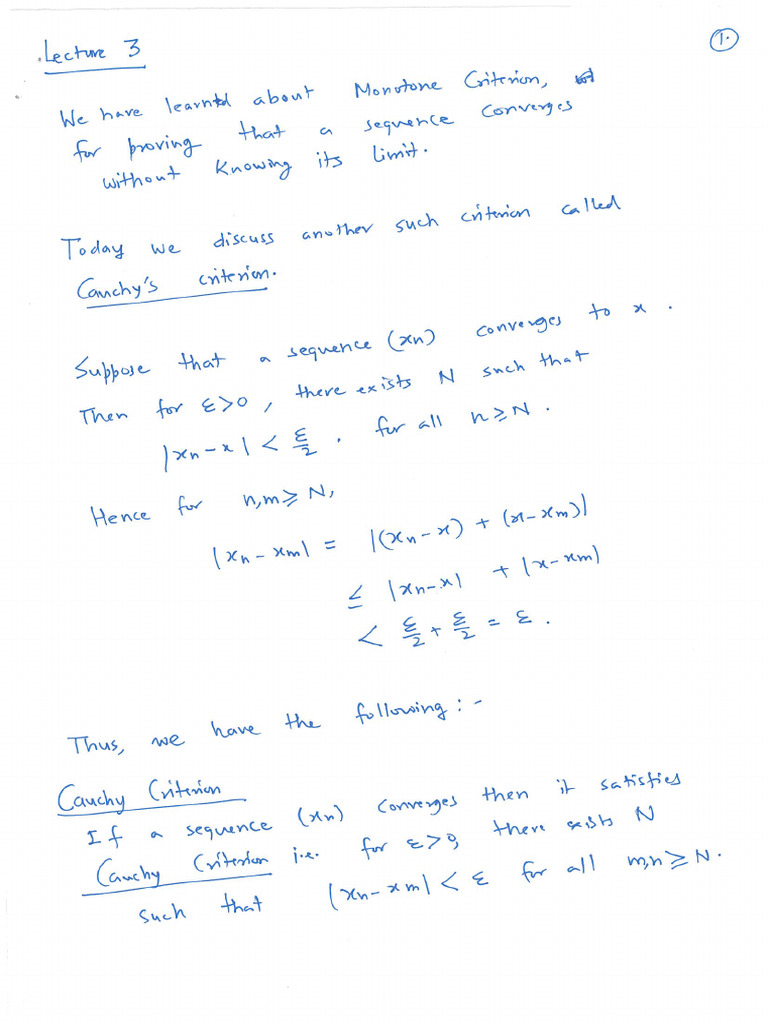 Lecture 3
1.
We have learnt about Monotone Criterion,
for proving that a sequence converges
without knowing its limit.
Today we discuss another such criterion called
Cauchy's criterion.
Suppose that a sequence (xn) converges to x.
Then for ε>0, there exists N such that
|xn-x| < ε/2 . for all n≥N.
Hence for n,m≥N,
|xn-xm| = |(xn-x) + (x-xm)|
≤ |xn-x| + |x-xm|
< ε/2 + ε/2 = ε.
Thus, we have the following:-
Cauchy Criterion
If a sequence (xn) converges then it satisfies
Cauchy Criterion i.e. for ε>0, there exists N
such that |xn-xm| < ε for all m,n≥N.